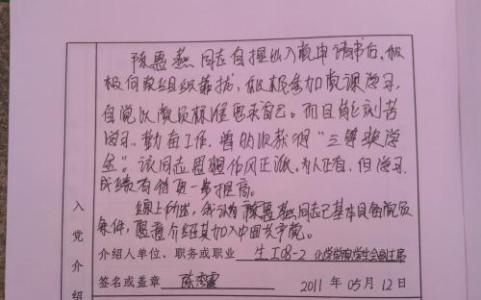 陈惠燕同志自提出入党申请书后,积极
极向党组织靠拢,积极参加党课学习,
自觉以党员标准要求自己。而且能刻苦
学习,勤奋工作,曾多次获得"三等奖学
金"。该同志思想作风正派,为人正直,但学习
成绩有待进一步提高。
综上所述,我认为陈惠燕同志已基本具备党员
条件,愿意介绍其加入中国共产党。
入党介绍
介绍人单位、职务或职业 生工08-2 化学学院学生会副主席
签名或盖章 陈
2011 年 05 月 12 日